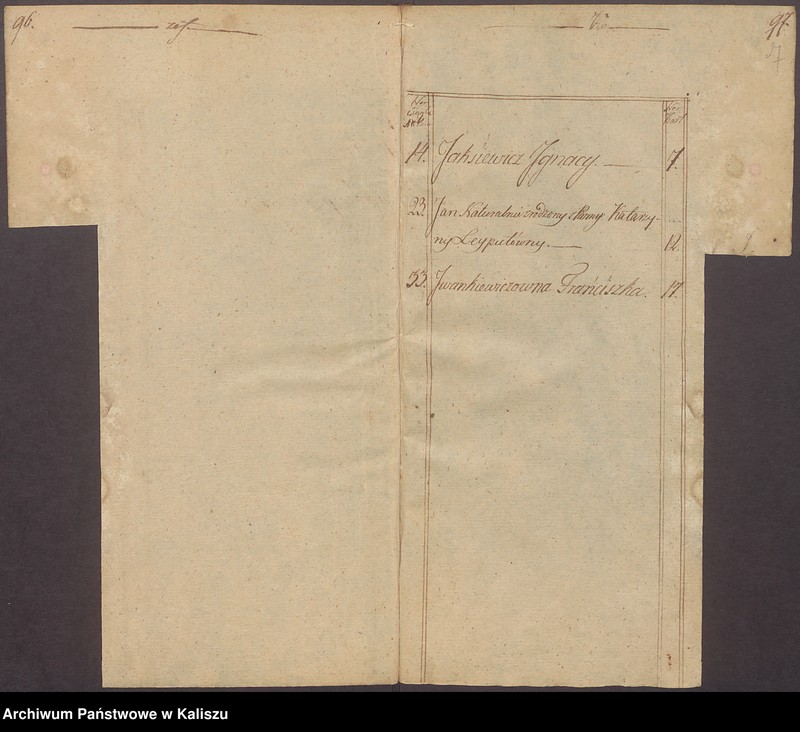 96.
97.
14. Jaksiewicz Ignacy. 7.
23. Jan Naturalnie zrodzony z Panny Katarzy-
ny Leyputówny. 12.
33. Iwankiewiczowna Franciszka. 17.
Archiwum Państwowe w Kaliszu